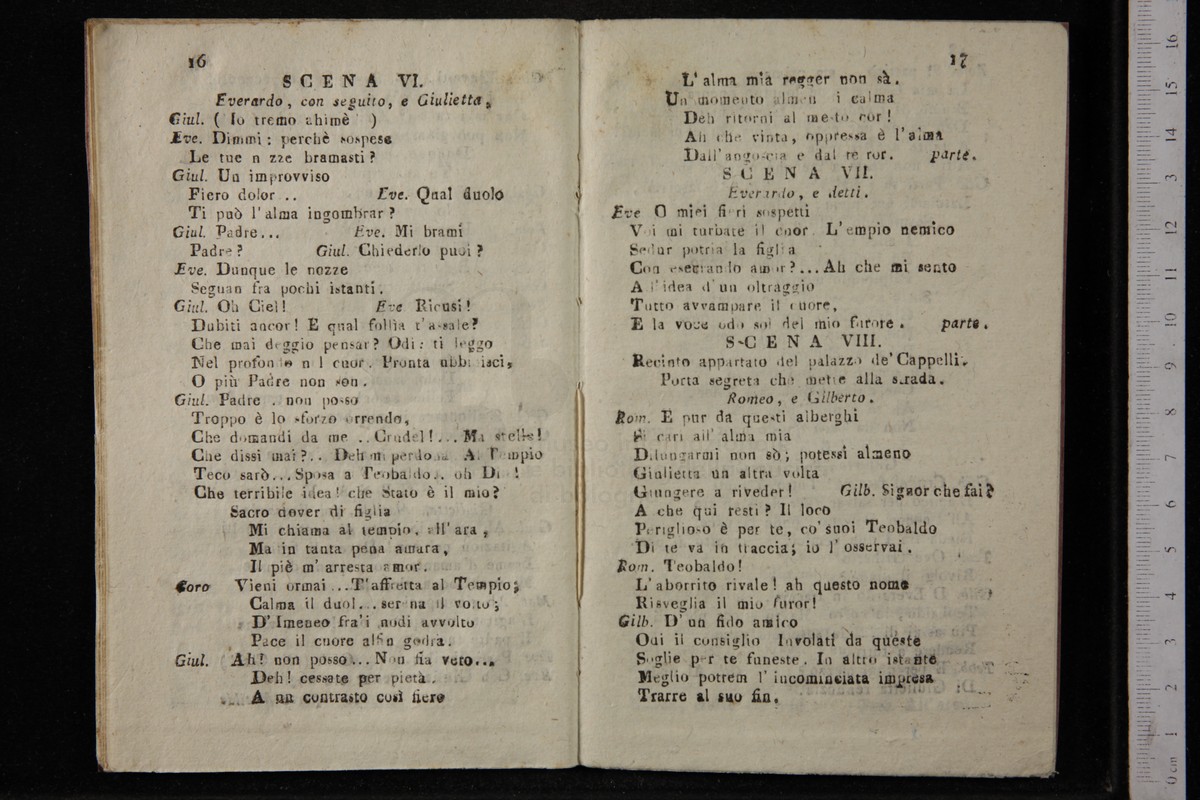 16
SCENA VI.
Everardo, con seguito, e Giulietta,
Giul. ( Io tremo ahimè )
Eve. Dimmi : perchè sospese
Le tue n zze bramasti ?
Giul. Un improvviso
Fiero dolor .. Eve. Qual duolo
Ti può l' alma ingombrar ?
Giul. Padre... Eve. Mi brami
Padre ? Giul. Chiederlo puoi ?
Eve. Dunque le nozze
Seguan fra pochi istanti.
Giul. Oh Ciel! Eve Ricusi!
Dubiti ancor! E qual follìa t'assale?
Che mai deggio pensar? Odi: ti leggo
Nel profondo n l cuor. Pronta ubbidisci,
O più Padre non son.
Giul. Padre .. non posso
Troppo è lo sforzo orrendo,
Che domandi da me .. Crudel!... Ma stelle!
Che dissi mai?.. Deh m perdona Al Tempio
Teco sarò... Sposa a Teobaldo.. oh Dio!
Che terribile idea! che Stato è il mio?
Sacro dover di figlia
Mi chiama al tempio, all' ara,
Ma in tanta pena amara,
Il piè m' arresta amor.
Coro Vieni ormai...T'affretta al Tempio;
Calma il duol...serena il volto;
D' Imeneo fra'i nodi avvolto
Pace il cuore alfin godrà.
Giul. Ah! non posso... Non fia vero...
Deh! cessate per pietà.
A un contrasto così fiero
17
L' alma mia regger non sà.
Un momento almen i calma
Deh ritorni al mesto cor!
Ah che vinta, oppressa è l' alma
Dall' angoscia e dal terror. parte.
SCENA VII.
Everardo, e detti.
Eve O miei fieri sospetti
Voi mi turbate il cuor. L' empio nemico
Sedur potria la figlia
Con esecrando amor?... Ah che mi sento
A l'idea d' un oltraggio
Tutto avvampare il cuore,
E la voce odo sol del mio furore. parte.
SCENA VIII.
Recinto appartato del palazzo de' Cappelli.
Porta segreta che mette alla strada.
Romeo, e Gilberto.
Rom. E pur da questi alberghi
Sì cari all' alma mia
Dilungarmi non sò; potessi almeno
Giulietta un altra volta
Giungere a riveder! Gilb. Signor che fai?
A che qui resti ? Il loco
Periglioso è per te, co' suoi Teobaldo
Di te va in traccia; io l' osservai.
Rom. Teobaldo!
L' aborrito rivale! ah questo nome
Risveglia il mio furor!
Gilb. D' un fido amico
Odi il consiglio Involati da queste
Soglie per te funeste. In altro istante
Meglio potrem l' incominciata impresa
Trarre al suo fin.